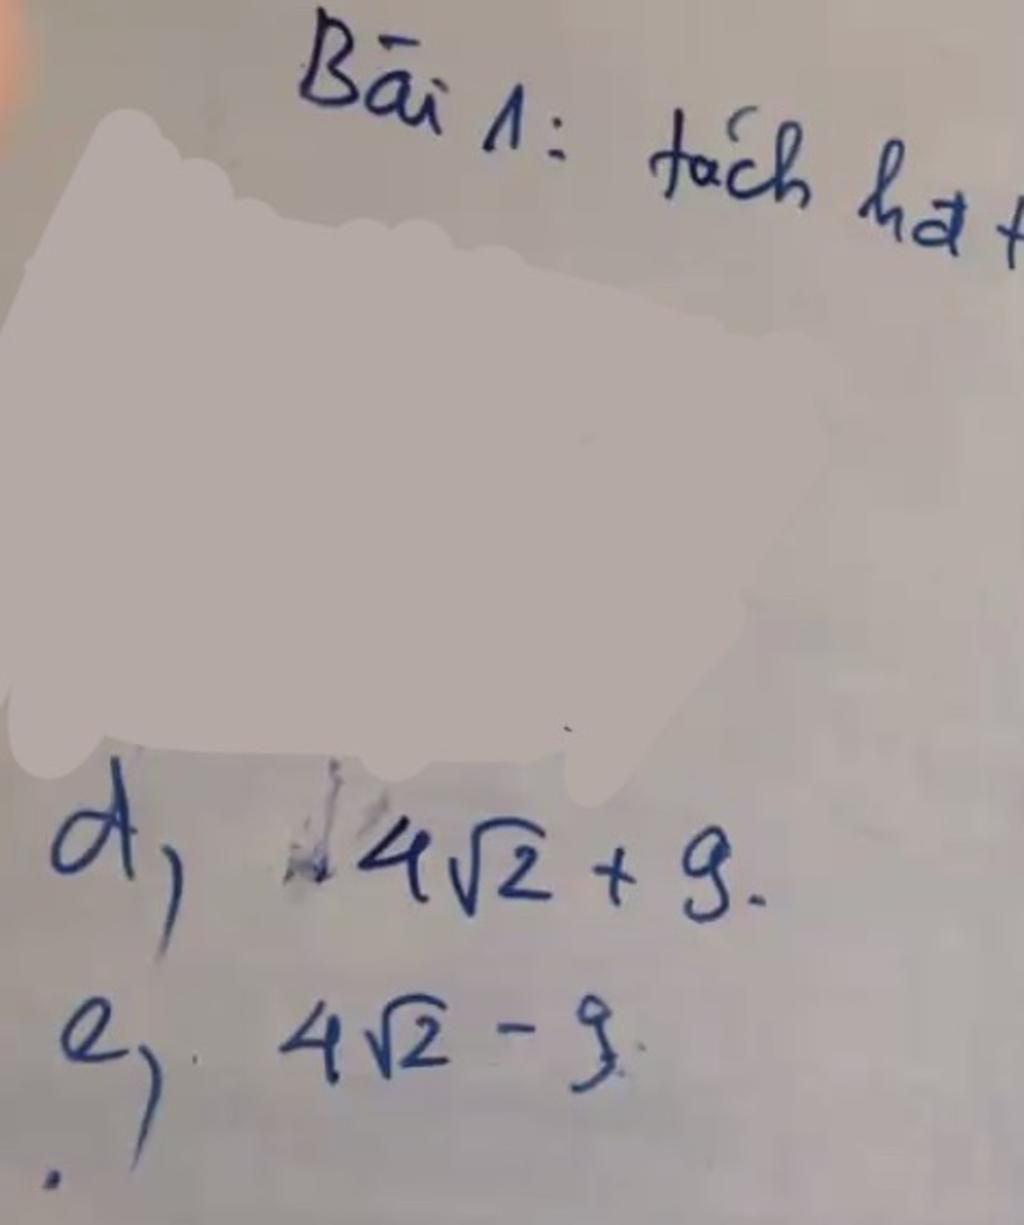 Bài 1: tách hđt
d, 4√2 + 9.
e, 4√2 - 9.